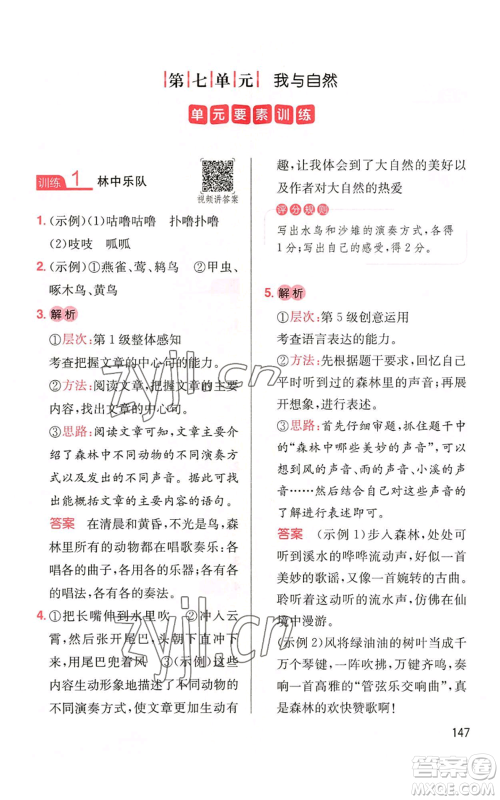 第七单元 我与自然
单元要素训练
训练 1 林中乐队
视频讲答案
1. (示例)(1)咕噜咕噜 扑噜扑噜
(2)吱吱 呱呱
2. (示例)①燕雀、莺、鸫鸟 ②甲虫、
啄木鸟、黄鸟
3. 解析
①层次：第1级整体感知
考查把握文章的中心句的能力。
②方法：阅读文章，把握文章的主要
内容，找出文章的中心句。
③思路：阅读文章可知，文章主要描
写了森林中不同的动物的不同演奏
方式以及发出的不同声音。故找出
能够概括文章的主要内容的语句。
答案 在清晨和黄昏，不光是鸟，森
林里所有的动物都在唱歌奏乐：各
唱各的曲子，各用各的乐器；各有各
的唱法，各有各的奏法。
4. ①把长嘴伸到水里吹 ②冲入云
霄，然后张开尾巴、头朝下直冲下
来，用尾巴兜着风 ③(示例)内容
生动形象地描写了不同的动物的不
同演奏方式，使文章更加生动有
趣，让我体会到了大自然的美好以
及作者对大自然的热爱
评分规则
写出水鸟和沙雉的演奏方式，各得
1分；写出自己的感受，得2分。
5. 解析
①层次：第5级创意运用
考查语言表达的能力。
②方法：先根据题干要求，回忆自己
在生活中听到的森林里的声音；再展
开想象，进行表述。
③思路：首先仔细审题，抓住题干中
的“森林中哪些美妙的声音”，然后展
开想象，如风的声音、雨的声音、小溪
的声音……最后对这些声音的内容进
行具体表述即可。
答案 (示例1)步入森林，处处可
听到溪水的哗哗流动声，或如一首
美妙的歌谣，或像一婉转的古曲。
听着动听的流水声，仿佛在仙
境中漫游。
(示例2)风将绿油油的树叶当成千
万个琴键，一吹一吹拂，一拨动，林
里便响起了“管弦乐交响曲”，真
是森林的欢快赞歌啊！
147
zyjl.cn
zyjl.cn
答案圈
MXQE.COM